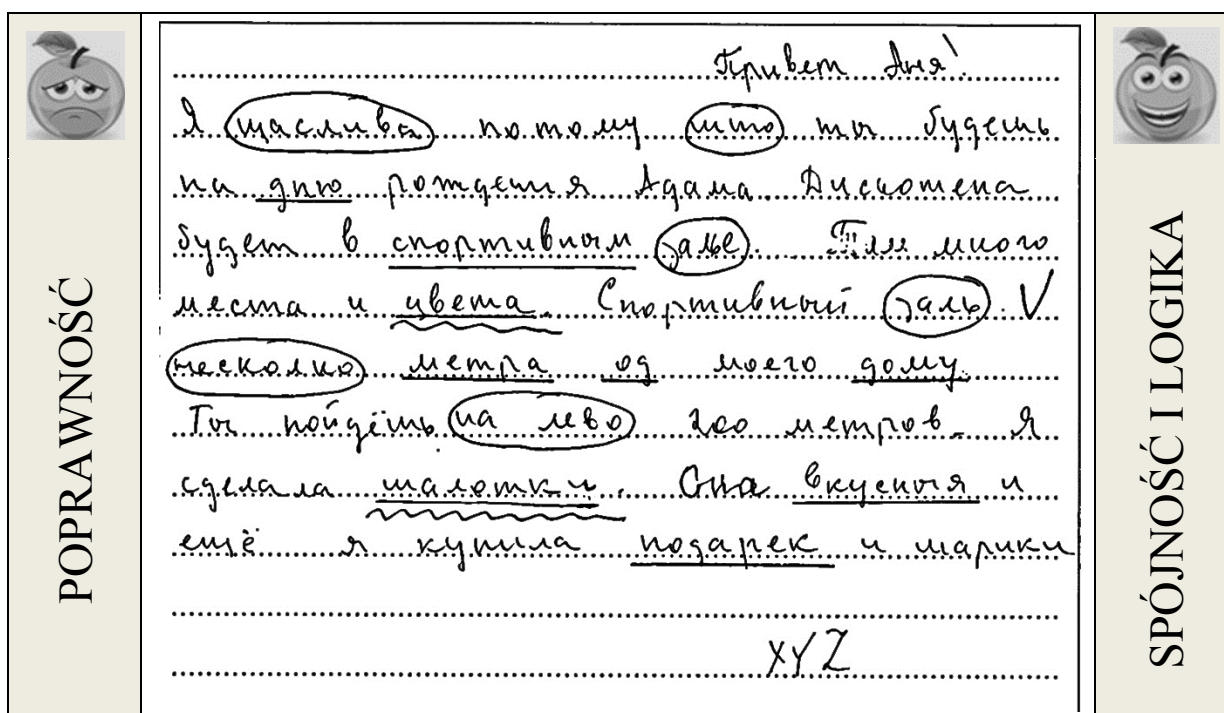 POPRAWNOŚĆ
Привет Аня!
Я щаслива потому што ты будешь
на дню рождения Адама. Дискотека
будет в спортивным залье. Там много
места и цвета. Спортивный заль. V
несколко метра од моего дому
Ты пойдёшь на лево 200 метров. Я
сделала шалотки. Она вкусныя и
ещё я купила подарек и шарики
XYZ
SPÓJNOŚĆ I LOGIKA